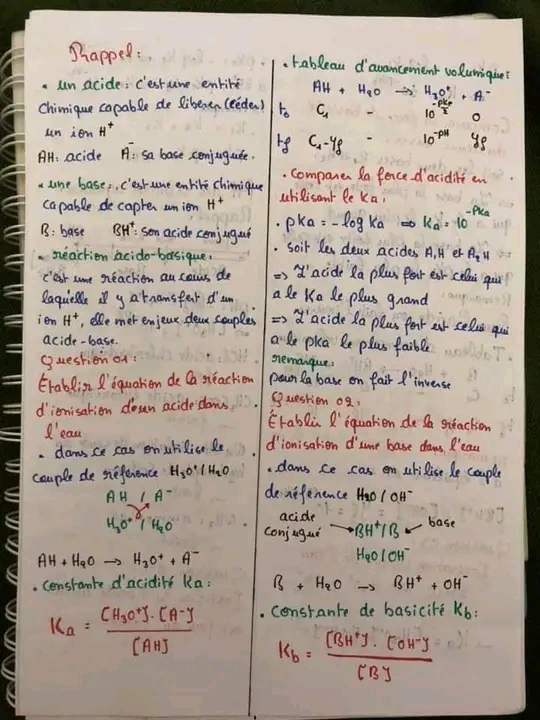 Rappel :
• un acide : c'est une entité
chimique capable de liberer (céder)
un ion H⁺
AH : acide A⁻ : sa base conjuguée.
• une base : c'est une entité chimique
capable de capter un ion H⁺
B : base BH⁺ : son acide conjugué
• réaction acido-basique :
c'est une réaction au cours de
laquelle il y a transfert d'un
ion H⁺, elle met en jeu deux couples
acide-base.
Question 01 :
Établir l'équation de la réaction
d'ionisation d'un acide dans
l'eau
• dans ce cas on utilise le
couple de référence H₃O⁺/H₂O
AH / A⁻
H₃O⁺ / H₂O
AH + H₂O → H₃O⁺ + A⁻
• constante d'acidité Ka :
Ka = [H₃O⁺] . [A⁻]
[AH]
• tableau d'avancement volumique :
AH + H₂O → H₃O⁺ + A⁻
t₀ C₁ - 10^(-pke/2) 0
tf C₁-yf - 10^-pH yf
• comparer la force d'acidité en
utilisant le Ka :
• pKa = - log Ka ⇒ Ka = 10^-pKa
• soit les deux acides A₁H et A₂H
⇒ L'acide la plus fort est celui qui
a le Ka le plus grand
⇒ L'acide la plus fort est celui qui
a le pka le plus faible
remarque :
pour la base on fait l'inverse
Question 02 :
Établir l'équation de la réaction
d'ionisation d'une base dans l'eau
• dans ce cas on utilise le couple
de référence H₂O / OH⁻
acide
conjugué → BH⁺/B ← base
H₂O/OH⁻
B + H₂O → BH⁺ + OH⁻
• constante de basicité Kb :
Kb = [BH⁺] . [OH⁻]
[B]